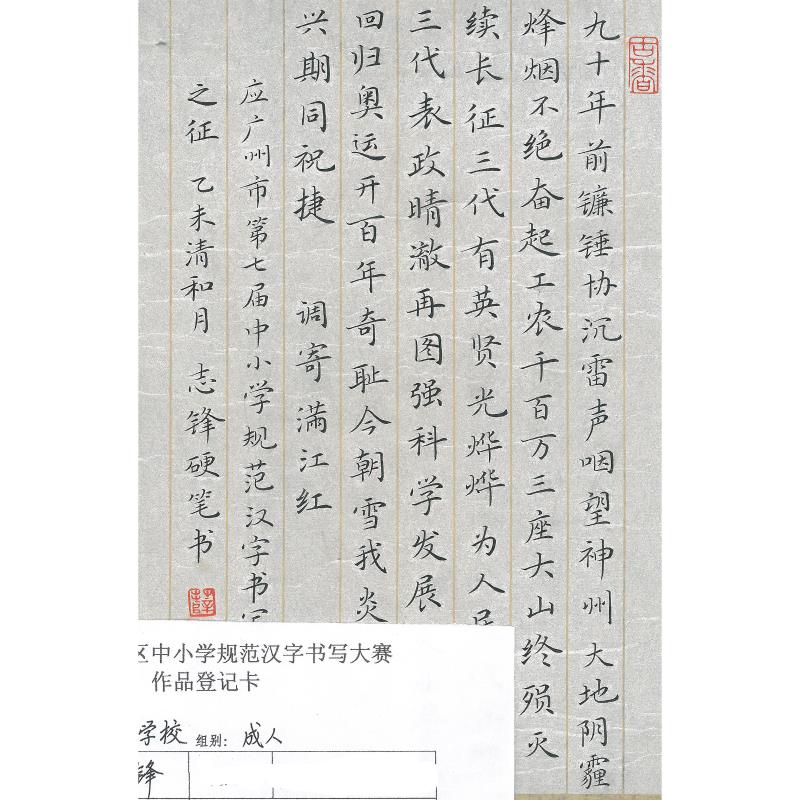 古香
九十年前镰锤协沉雷声咽望神州大地阴霾
烽烟不绝奋起工农千百万三座大山终殒灭
续长征三代有英贤光烨烨为人民
三代表政晴澈再图强科学发展
回归奥运开百年奇耻今朝雪我炎
兴期同祝捷 调寄满江红
应广州市第七届中小学规范汉字书写
之征 乙未清和月 志锋硬笔书
区中小学规范汉字书写大赛
作品登记卡
学校 组别：成人
锋